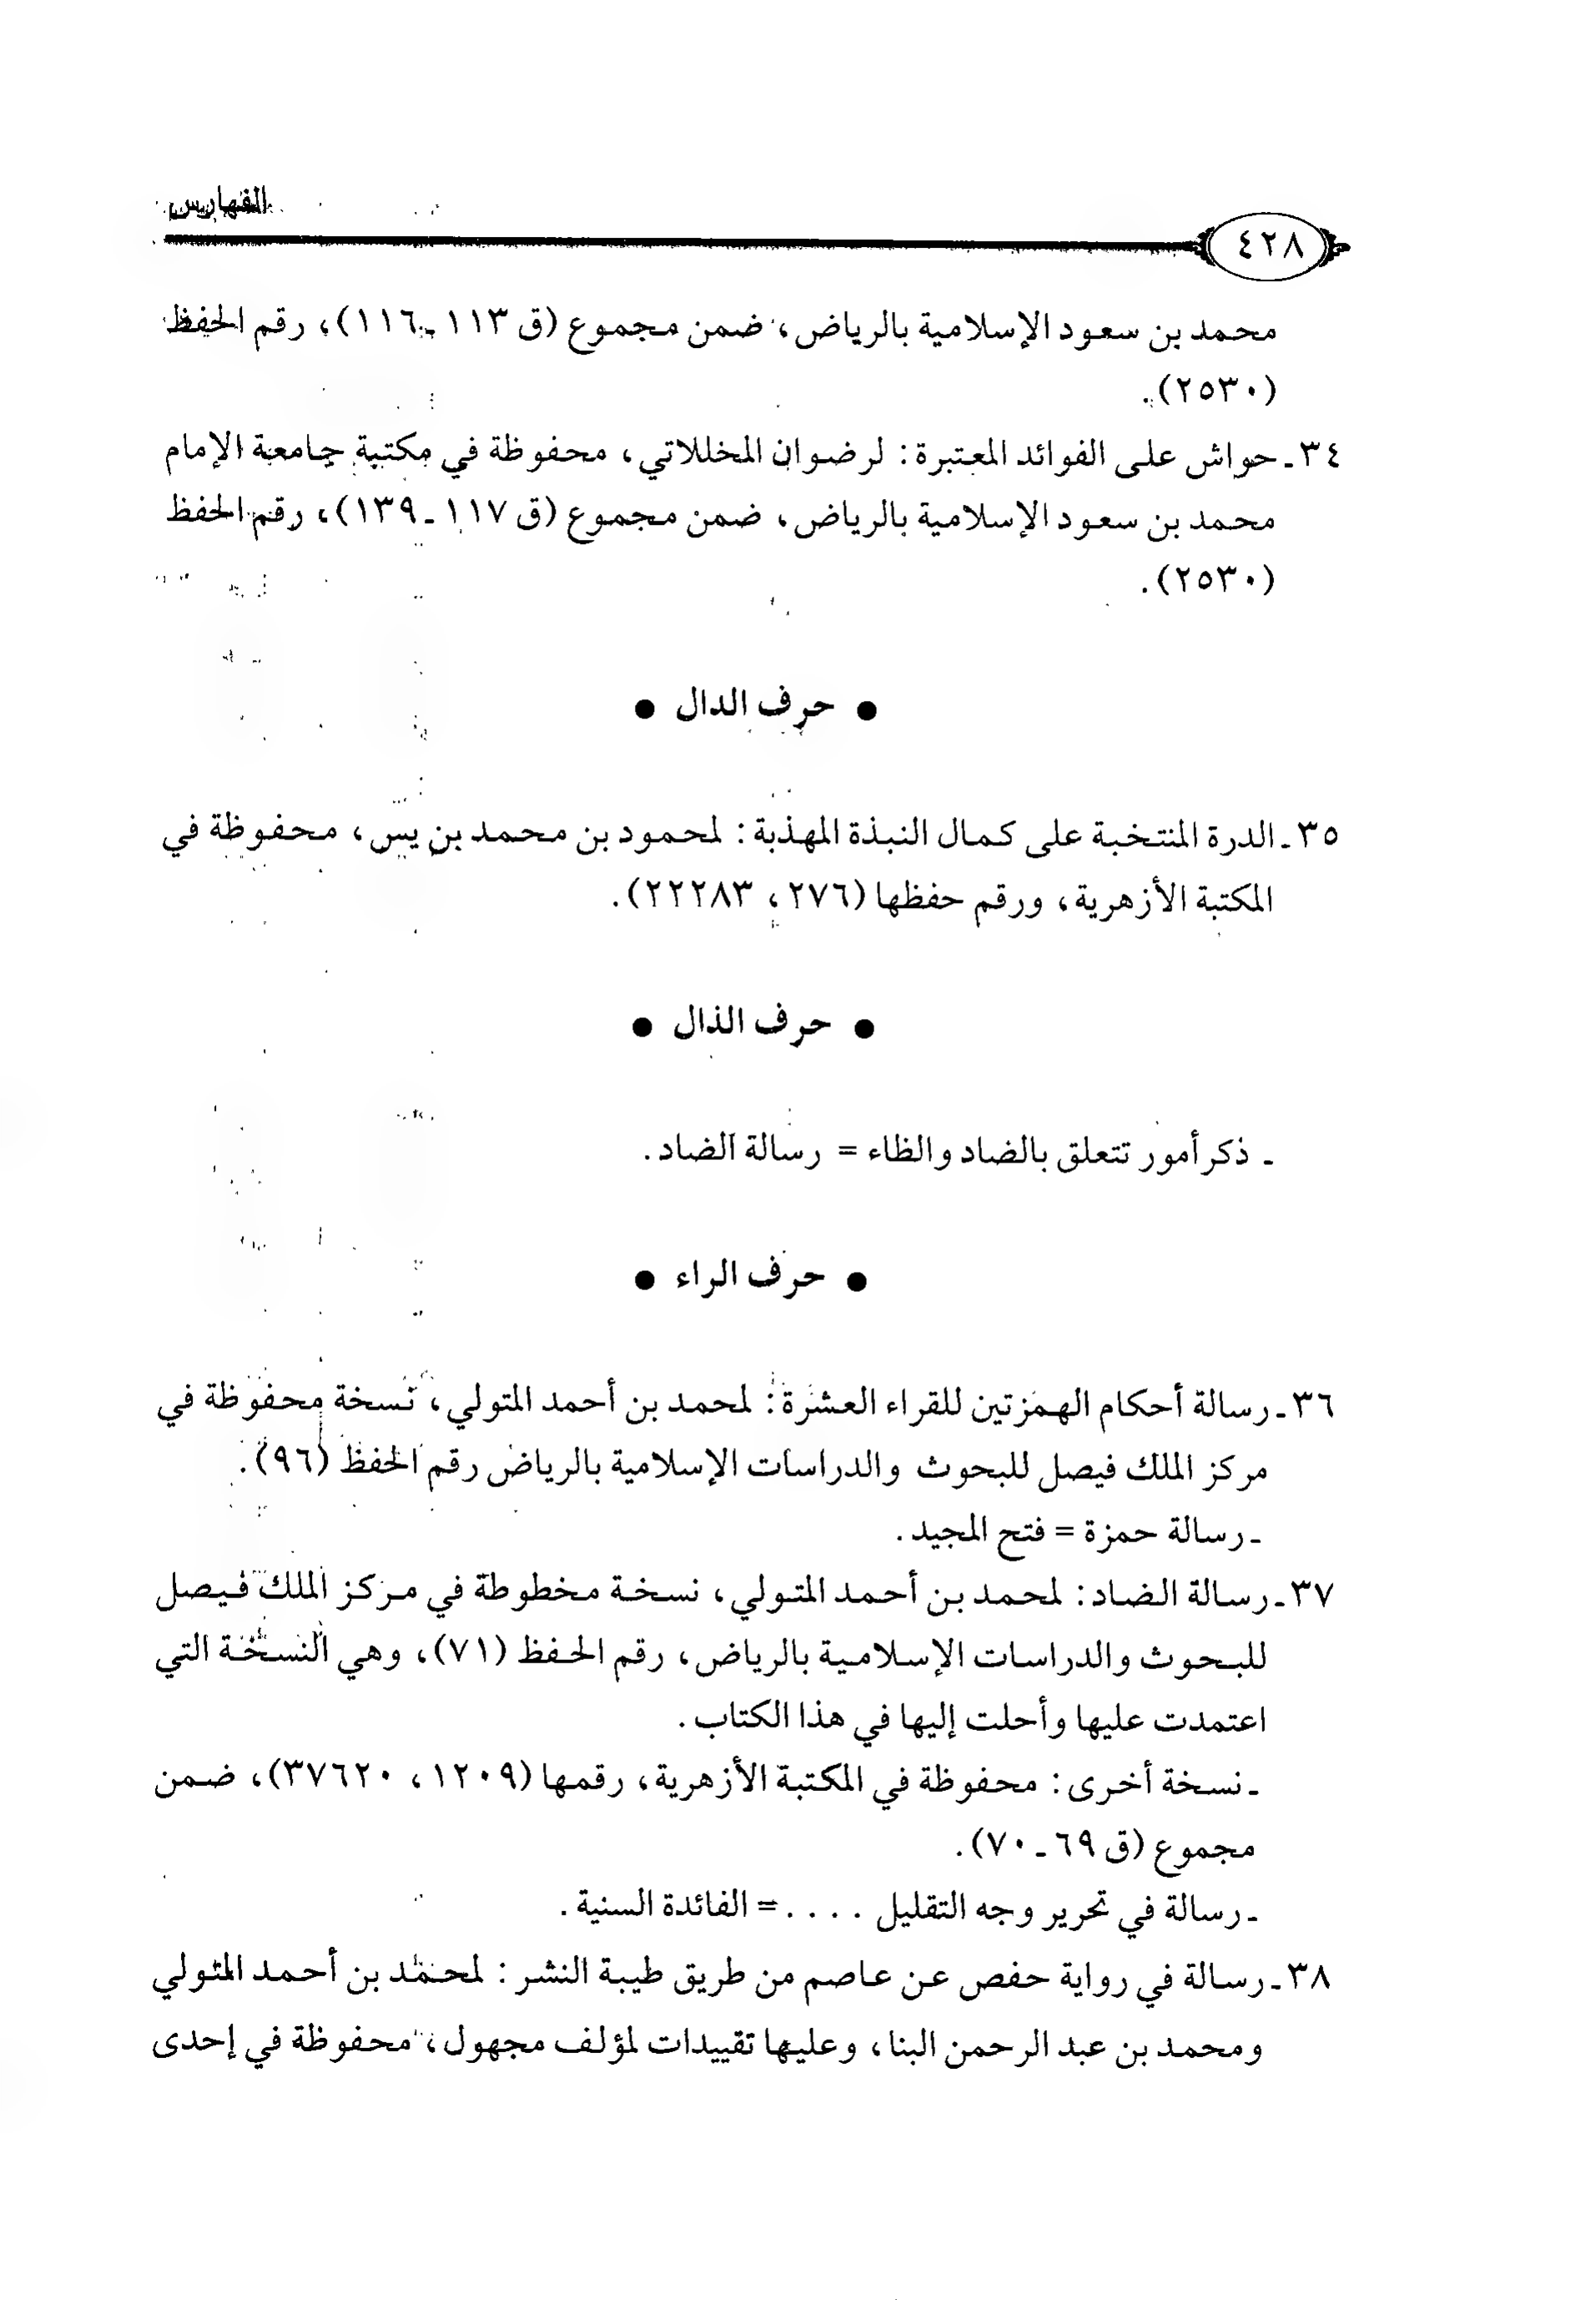 الفهارس
٤٢٨
محمد بن سعود الإسلامية بالرياض، ضمن مجموع (ق ١١٣ ـ ١١٦)، رقم الحفظ
(٢٥٣٠).
٣٤ ـ حواش على الفوائد المعتبرة: لرضوان المخللاتي، محفوظة في مكتبة جامعة الإمام
محمد بن سعود الإسلامية بالرياض، ضمن مجموع (ق ١١٧ ـ ١٣٩)، رقم الحفظ
(٢٥٣٠).
● حرف الدال ●
٣٥ ـ الدرة المنتخبة على كمال النبذة المهذبة: لمحمود بن محمد بن يس، محفوظة في
المكتبة الأزهرية، ورقم حفظها (٢٧٦، ٢٢٢٨٣).
● حرف الذال ●
ـ ذكر أمور تتعلق بالضاد والظاء = رسالة الضاد.
● حرف الراء ●
٣٦ ـ رسالة أحكام الهمزتين للقراء العشرة: لمحمد بن أحمد المتولي، نسخة محفوظة في
مركز الملك فيصل للبحوث والدراسات الإسلامية بالرياض رقم الحفظ (٩٦).
ـ رسالة حمزة = فتح المجيد.
٣٧ ـ رسالة الضاد: لمحمد بن أحمد المتولي، نسخة مخطوطة في مركز الملك فيصل
للبحوث والدراسات الإسلامية بالرياض، رقم الحفظ (٧١)، وهي النسخة التي
اعتمدت عليها وأحلت إليها في هذا الكتاب.
ـ نسخة أخرى: محفوظة في المكتبة الأزهرية، رقمها (١٢٠٩، ٣٧٦٢٠)، ضمن
مجموع (ق ٦٩ ـ ٧٠).
ـ رسالة في تحرير وجه التقليل .... = الفائدة السنية.
٣٨ ـ رسالة في رواية حفص عن عاصم من طريق طيبة النشر: لمحمد بن أحمد المتولي
ومحمد بن عبد الرحمن البنا، وعليها تقييدات لمؤلف مجهول، محفوظة في إحدى